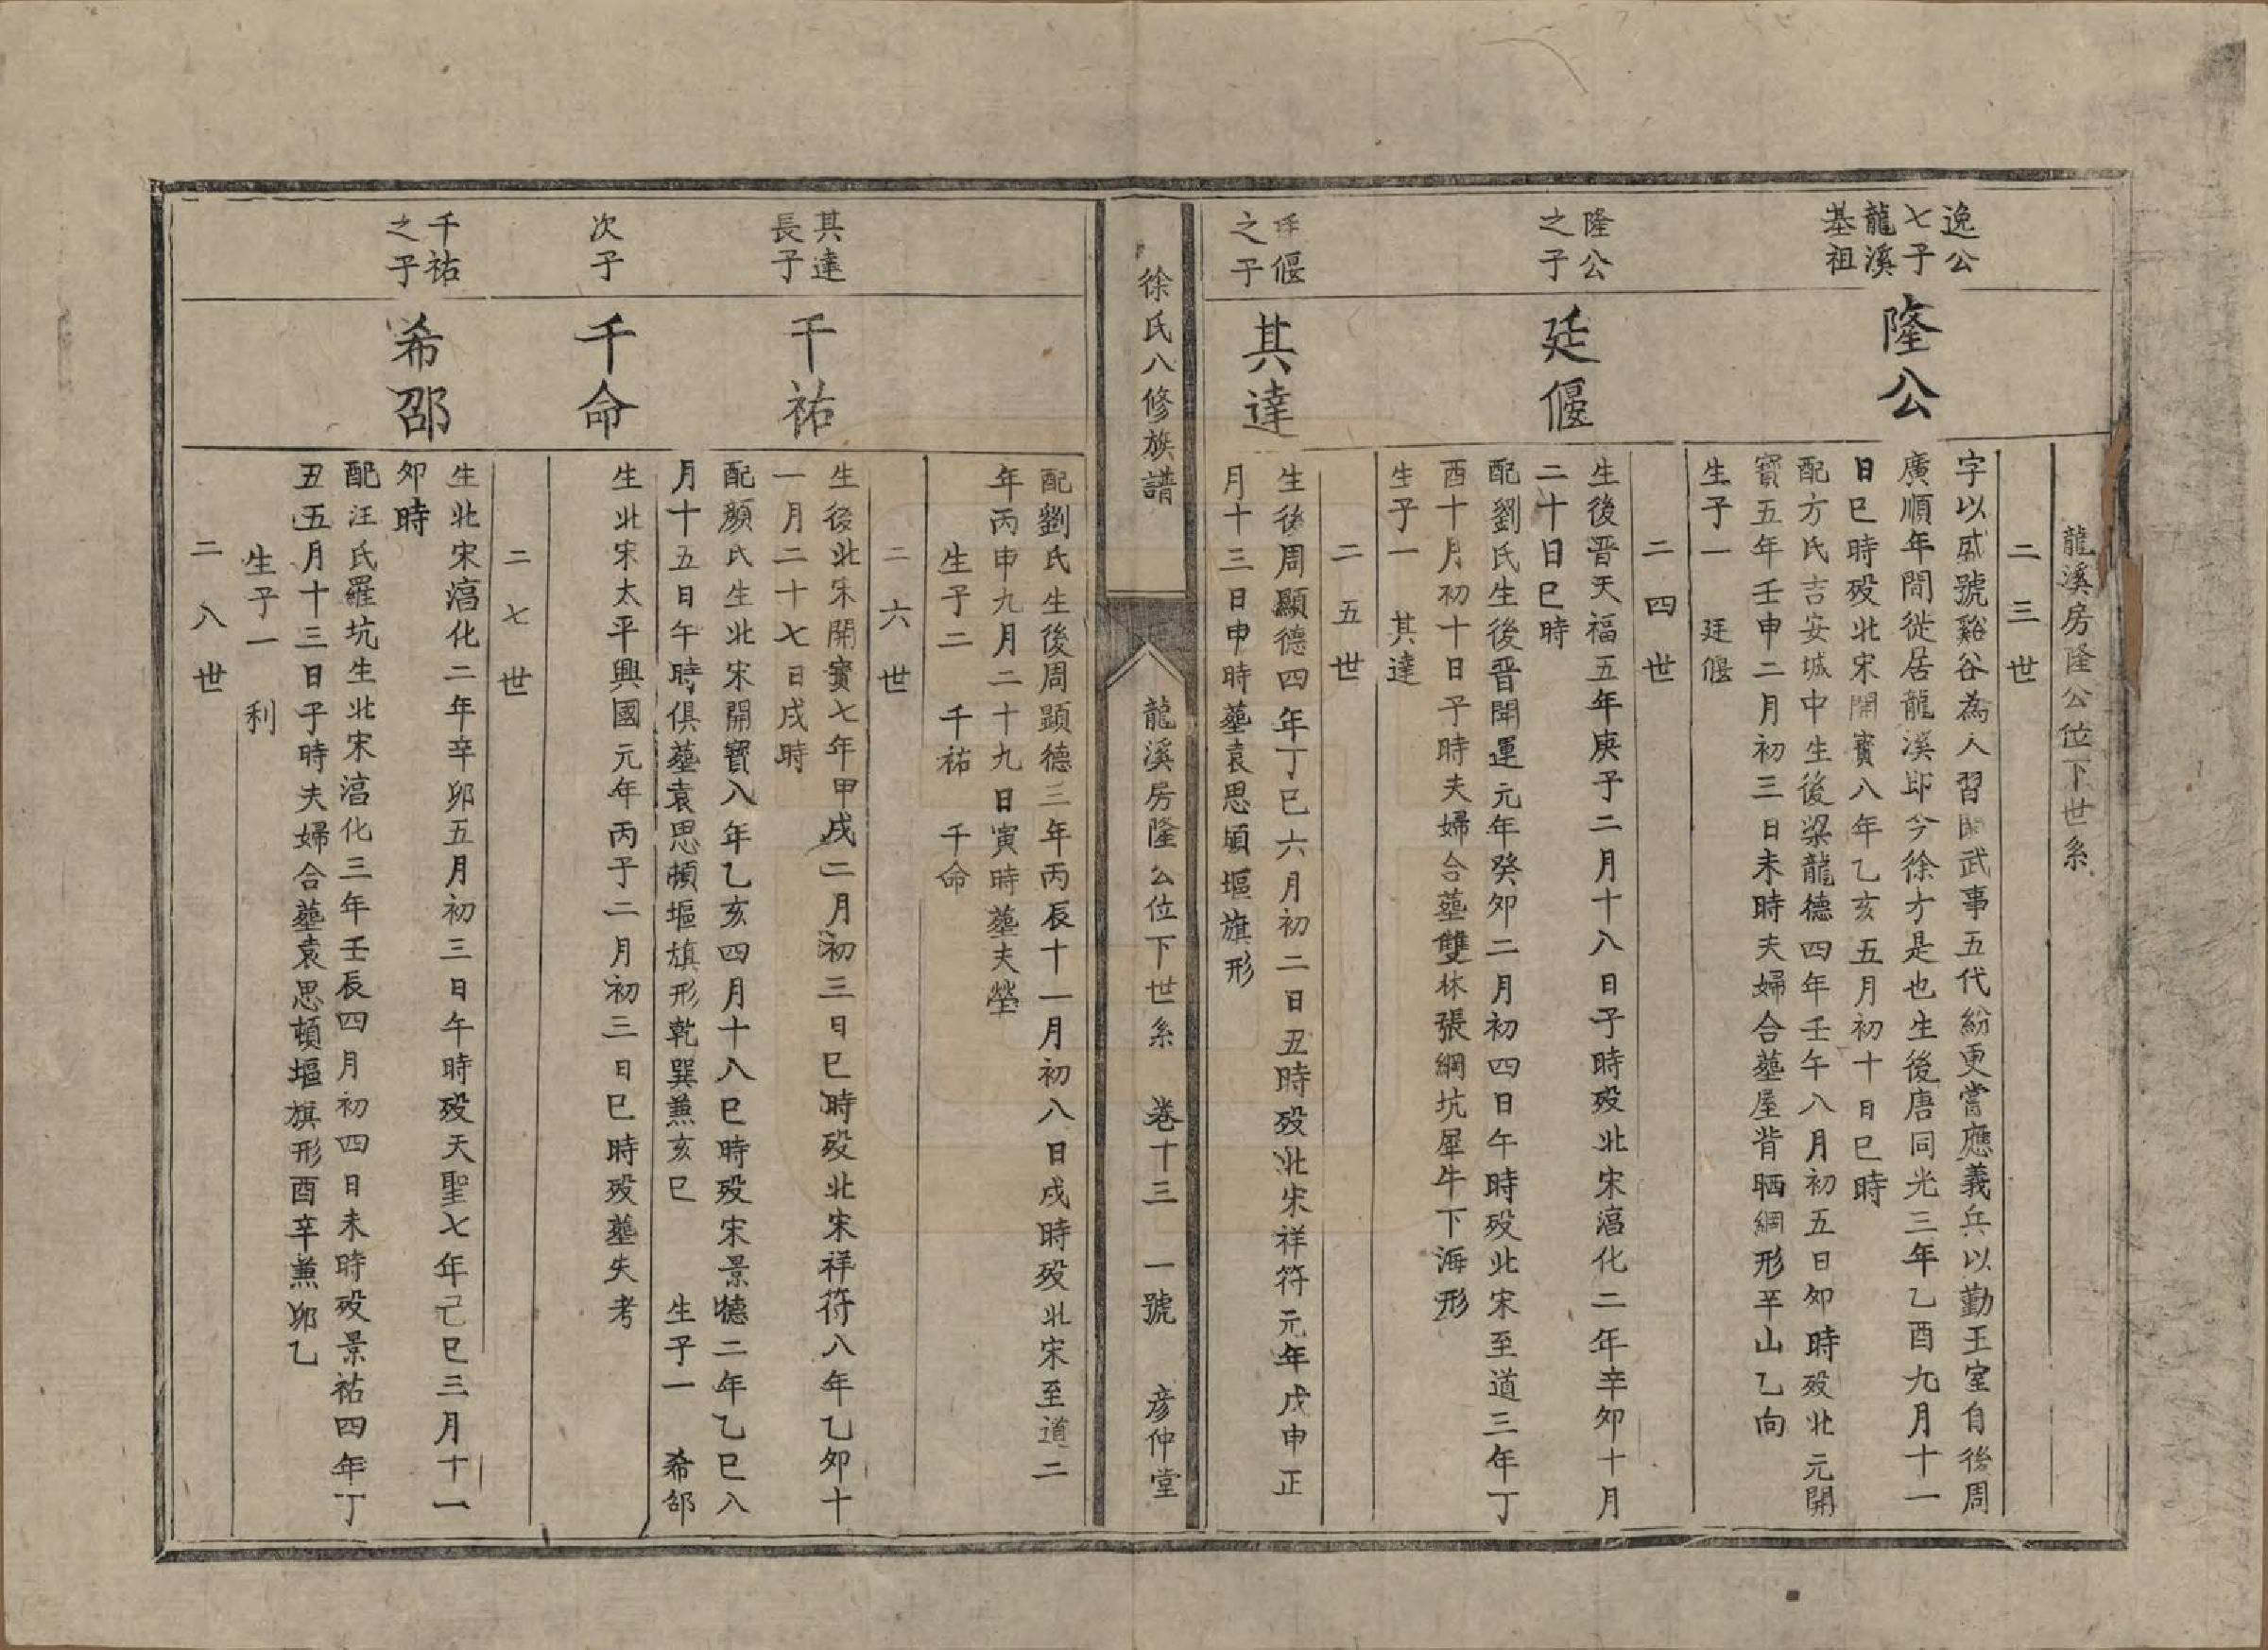 龍溪房隆公位下世系
二三世
逸公
七子
龍溪
基祖
隆公
字以盛號谿谷為人習閑武事五代紛更嘗應義兵以勤王室自後周
廣順年間徙居龍溪邱今徐才是也生後唐同光三年乙酉九月十一
日巳時歿北宋開寳八年乙亥五月初十日巳時
配方氏吉安城中生後梁龍德四年壬午八月初五日卯時歿北元開
寳五年壬申二月初三日未時夫婦合墓屋背晒網形羊山乙向
生子一　廷偃
二四世
隆公
之子
廷偃
生後晋天福五年庚子二月十八日子時歿北宋淳化二年辛卯十月
二十日巳時
配劉氏生後晋開運元年癸卯二月初四日午時歿北宋至道三年丁
酉十月初十日子時夫婦合墓雙林張網坑犀牛下海形
生子一　其達
二五世
廷偃
之子
其達
生後周顯德四年丁巳六月初二日丑時歿北宋祥符元年戊申正
月十三日申時墓袁思頓塸旗形
徐氏八修族譜
龍溪房隆公位下世系　卷十三　一號　彦仲堂
配劉氏生後周顕德三年丙辰十一月初八日戌時歿北宋至道二
年丙申九月二十九日寅時墓夫塋
生子二　千祐　千命
二六世
其達
長子
千祐
生後北宋開寳七年甲戌二月初三日巳時歿北宋祥符八年乙卯十
一月二十七日戌時
配顔氏生北宋開寳八年乙亥四月十八巳時歿宋景德二年乙巳八
月十五日午時俱墓袁思頓塸旗形乾巽兼亥巳　生子一　希邵
次子
千命
生北宋太平興國元年丙子二月初三日巳時歿墓失考
二七世
千祐
之子
希邵
生北宋淳化二年辛卯五月初三日午時歿天聖七年己巳三月十一
卯時
配汪氏羅坑生北宋淳化三年壬辰四月初四日未時歿景祐四年丁
丑五月十三日子時夫婦合墓袁思頓塸旗形酉辛兼卯乙
生子一　利
二八世